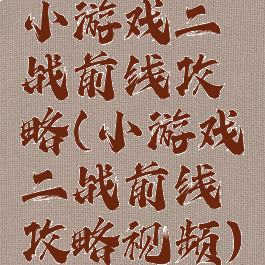 小游戏二
战前线攻
略(小游戏
二战前线
攻略视频)